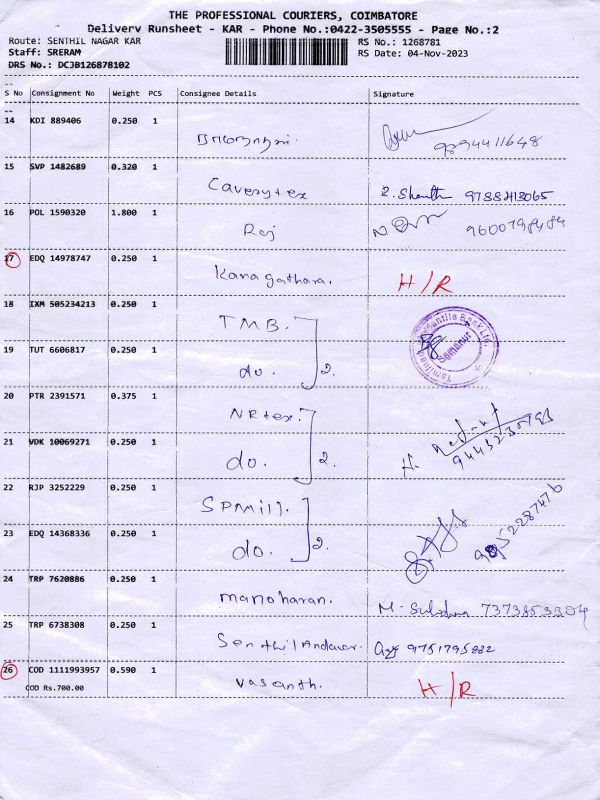 THE PROFESSIONAL COURIERS, COIMBATORE
Delivery Runsheet - KAR - Phone No.:0422-3505555 - Page No.:2
Route: SENTHIL NAGAR KAR RS No.: 1268781
Staff: SRERAM RS Date: 04-Nov-2023
DRS No.: DCJB126878102
S No Consignment No Weight PCS Consignee Details Signature
14 KDI 889406 0.250 1 9894411648
15 SVP 1482689 0.320 1 Caverytex
16 POL 1590320 1.800 1 Raj
17 EDQ 14978747 0.250 1 Kanagathara. H/R
18 IXM 505234213 0.250 1 TMB.
Tamilnad Mercantile Bank Ltd.
Samanur
19 TUT 6606817 0.250 1 do. 2.
20 PTR 2391571 0.375 1 NRtex.
21 VDK 10069271 0.250 1 do. 2. 9443230793
22 RJP 3252229 0.250 1 SPMill.
23 EDQ 14368336 0.250 1 do. 2.
24 TRP 7620886 0.250 1 manoharan.
25 TRP 6738308 0.250 1 Senthil Andavar. 9751795882
26 COD 1111993957 0.590 1 Vasanth. H/R
COD Rs.700.00